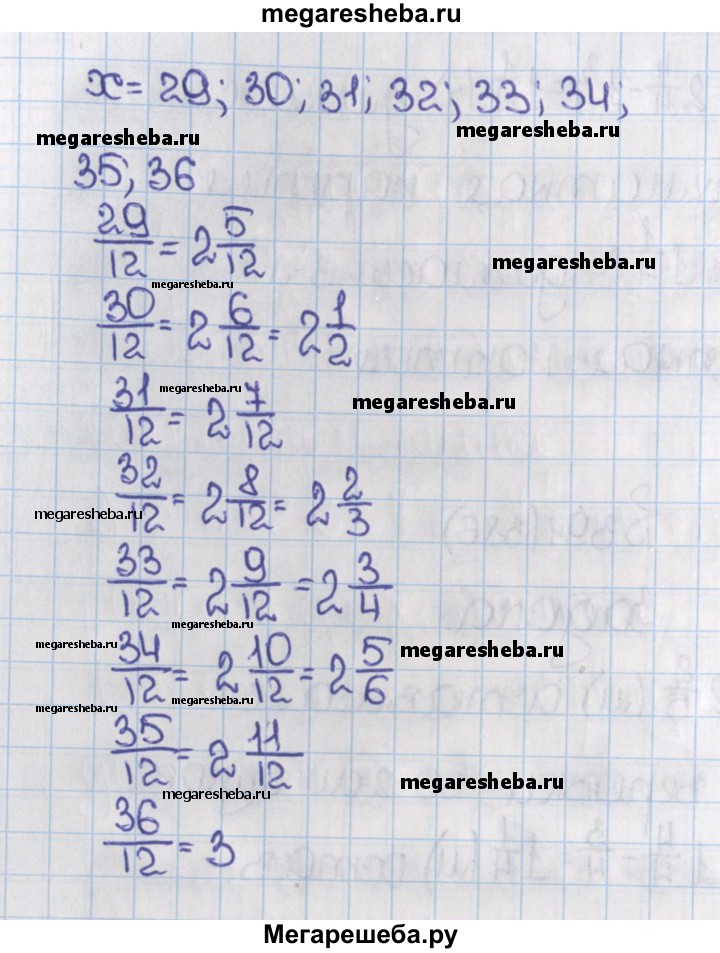 megaresheba.ru
x = 29; 30; 31; 32; 33; 34;
megaresheba.ru
megaresheba.ru
35; 36
29/12 = 2 5/12
megaresheba.ru
megaresheba.ru
30/12 = 2 6/12 = 2 1/2
megaresheba.ru
31/12 = 2 7/12
megaresheba.ru
32/12 = 2 8/12 = 2 2/3
megaresheba.ru
33/12 = 2 9/12 = 2 3/4
megaresheba.ru
megaresheba.ru
34/12 = 2 10/12 = 2 5/6
megaresheba.ru
megaresheba.ru
megaresheba.ru
35/12 = 2 11/12
megaresheba.ru
megaresheba.ru
36/12 = 3
Мегарешеба.ру